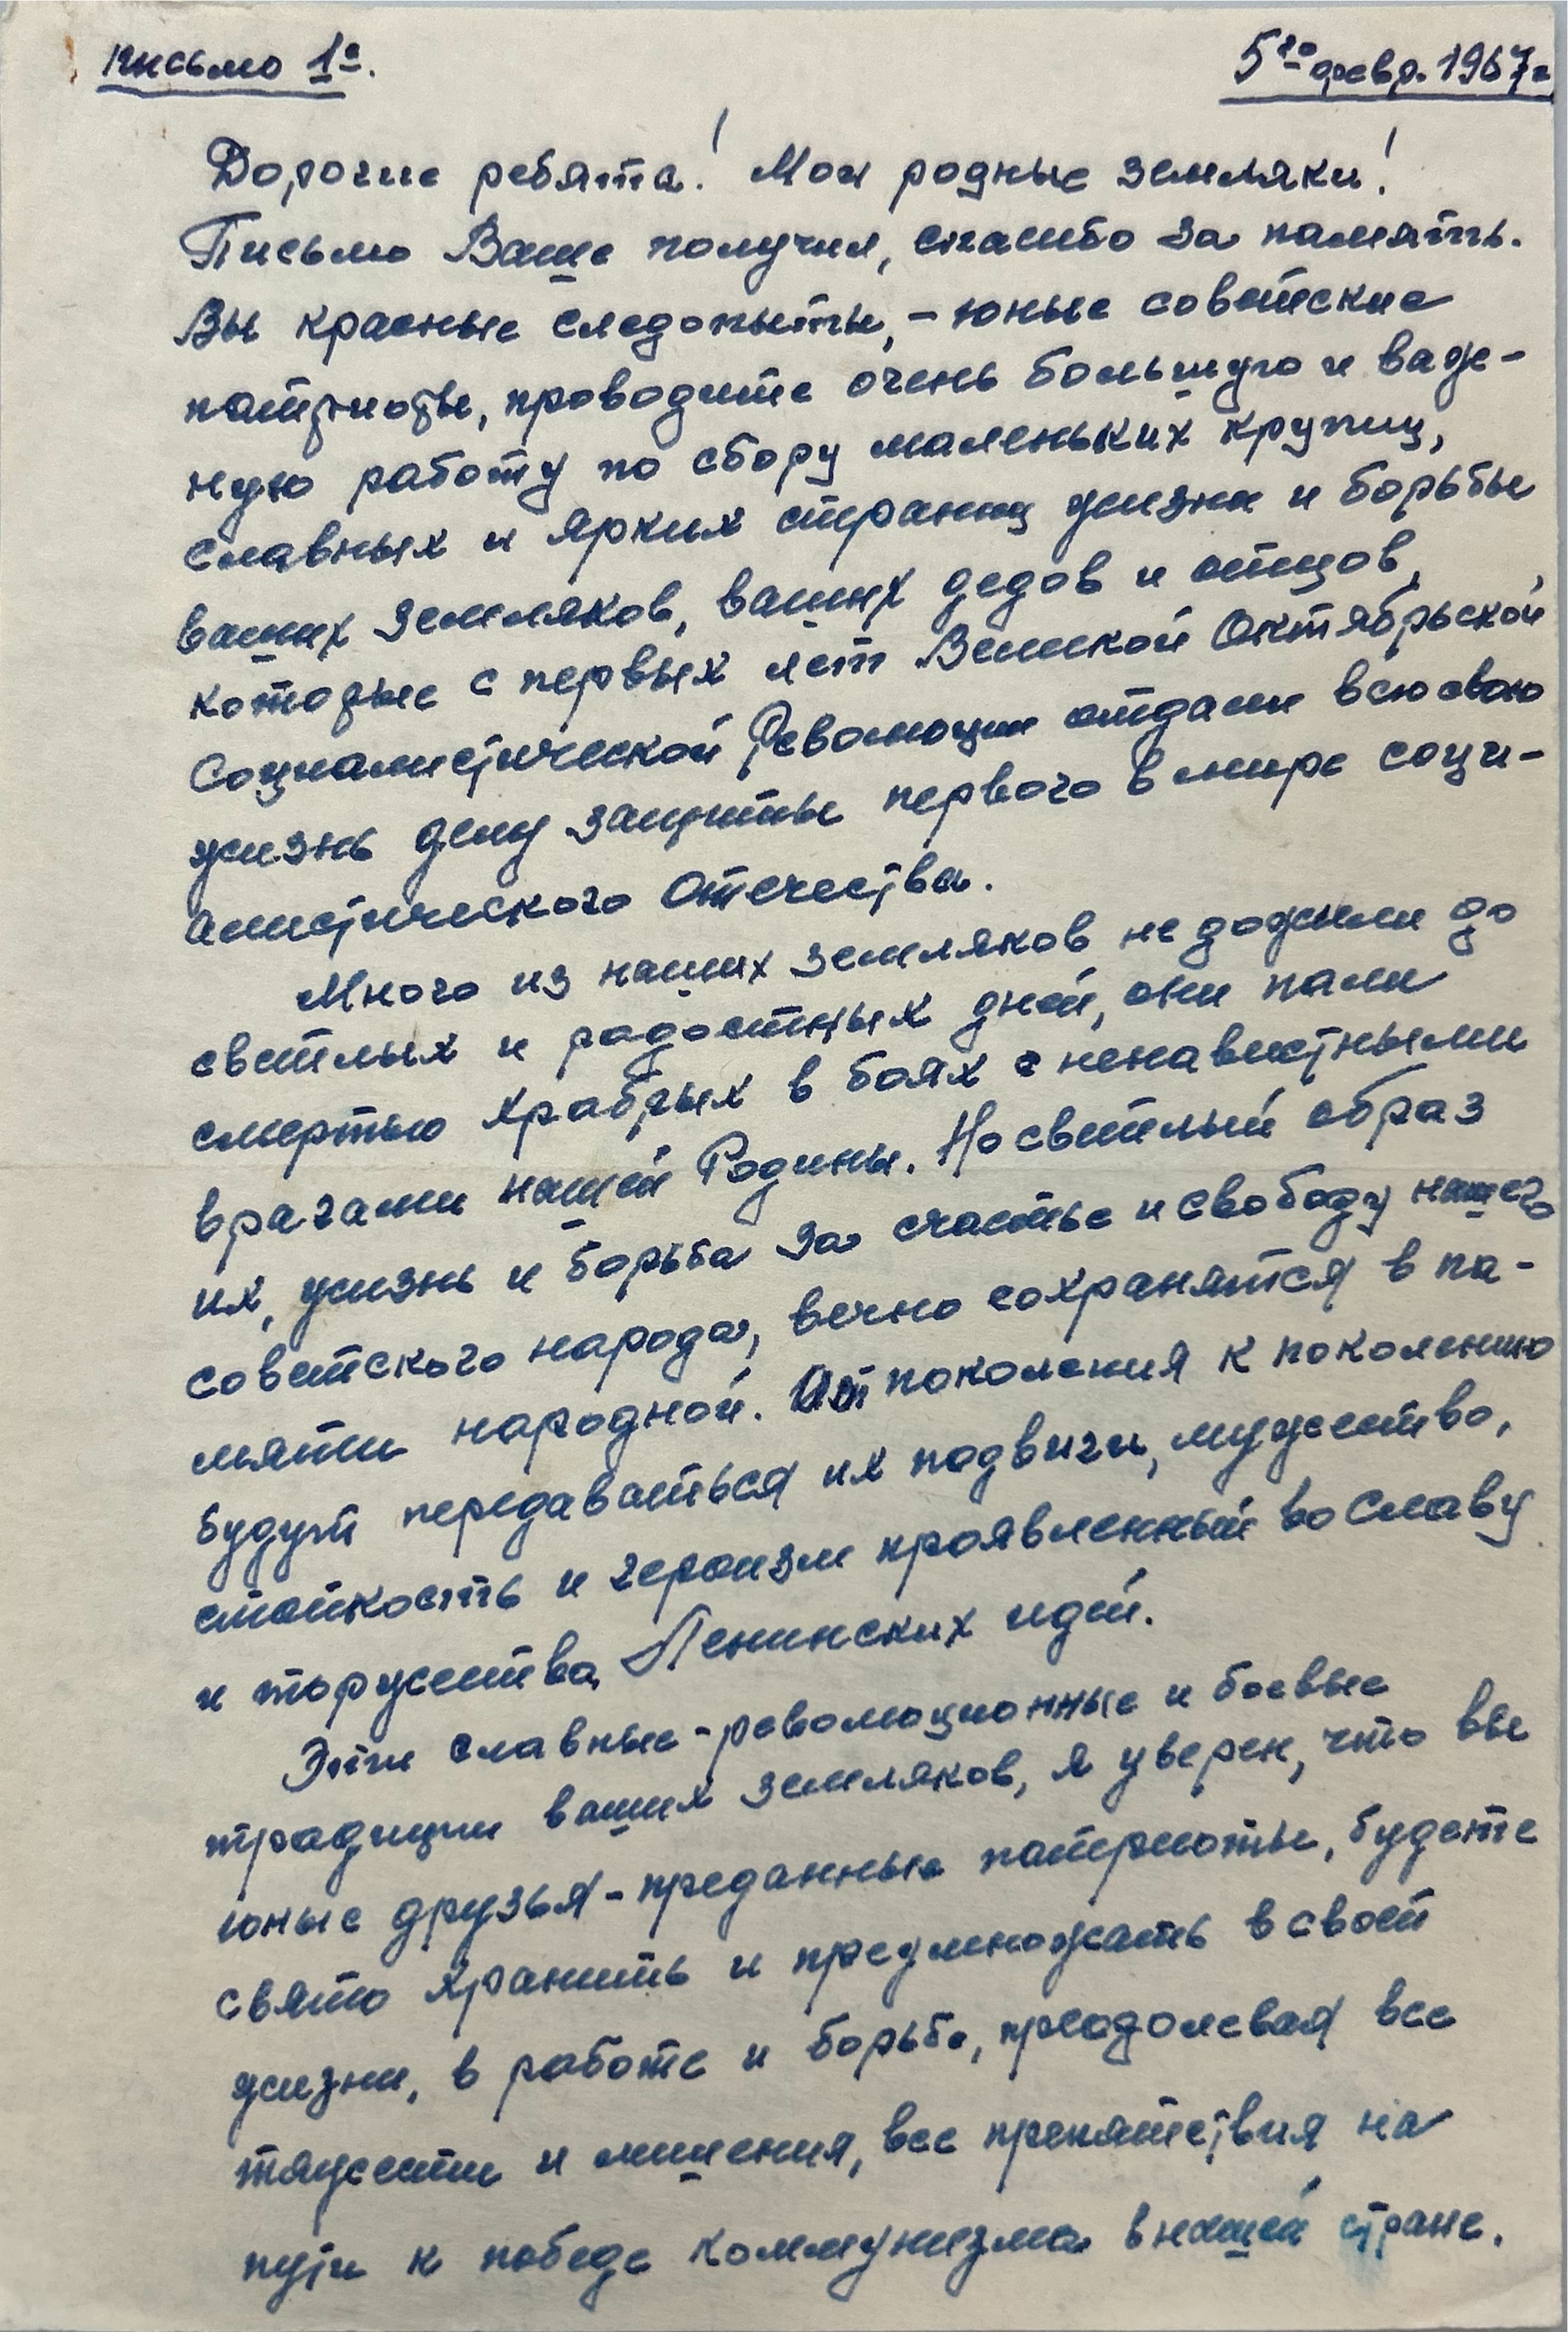 письмо 1е.
5го февр. 1967г
Дорогие ребята! Мои родные земляки!
Письмо Ваше получил, спасибо за память.
Вы красные следопыты, - юные советские
патриоты, проводите очень большую и важ-
ную работу по сбору маленьких крупиц,
славных и ярких страниц жизни и борьбы
ваших земляков, ваших дедов и отцов,
которые с первых лет Великой Октябрьской
Социалистической Революции отдали всю свою
жизнь делу защиты первого в мире соци-
алистического Отечества.
Много из наших земляков не дожили до
светлых и радостных дней, они пали
смертью храбрых в боях с ненавистными
врагами нашей Родины. Но светлый образ
их, жизнь и борьба за счастье и свободу нашего
советского народа, вечно сохранятся в па-
мяти народной. От поколения к поколению
будут передаваться их подвиги, мужество,
стойкость и героизм проявленный во Славу
и торжества Ленинских идей.
Эти славные - революционные и боевые
традиции ваших земляков, я уверен, что вы
юные друзья - преданные патриоты, будете
свято хранить и преумножать в своей
жизни, в работе и борьбе, преодолевая все
тяжести и лишения, все препятствия на
пути к победе коммунизма в нашей стране.